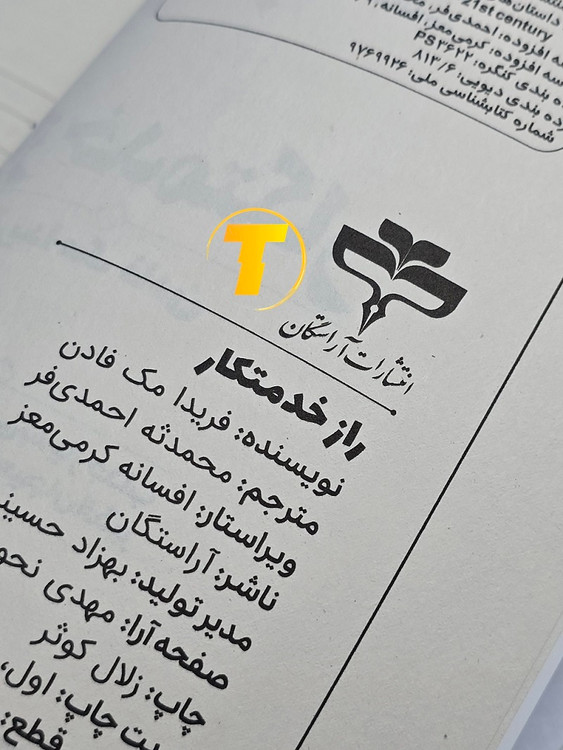 داستان‌های
21st century
ه افزوده: احمدی‌فر، مح
سه افزوده: کرمی‌معز، افسانه، ۹
ه بندی کنگره: PS۳۶۲۲
رده بندی دیویی: ۸۱۳/۶
شماره کتابشناسی ملی: ۹۷۶۹۹۲۶
T
انتشارات آراستگان
راز خدمتکار
نویسنده: فریدا مک فادن
مترجم: محمدثه احمدی‌فر
ویراستار: افسانه کرمی‌معز
ناشر: آراستگان
مدیر تولید: بهزاد حسینی
صفحه‌آرا: مهدی نحو
چاپ: زلال کوثر
بت چاپ: اول،
قطع: